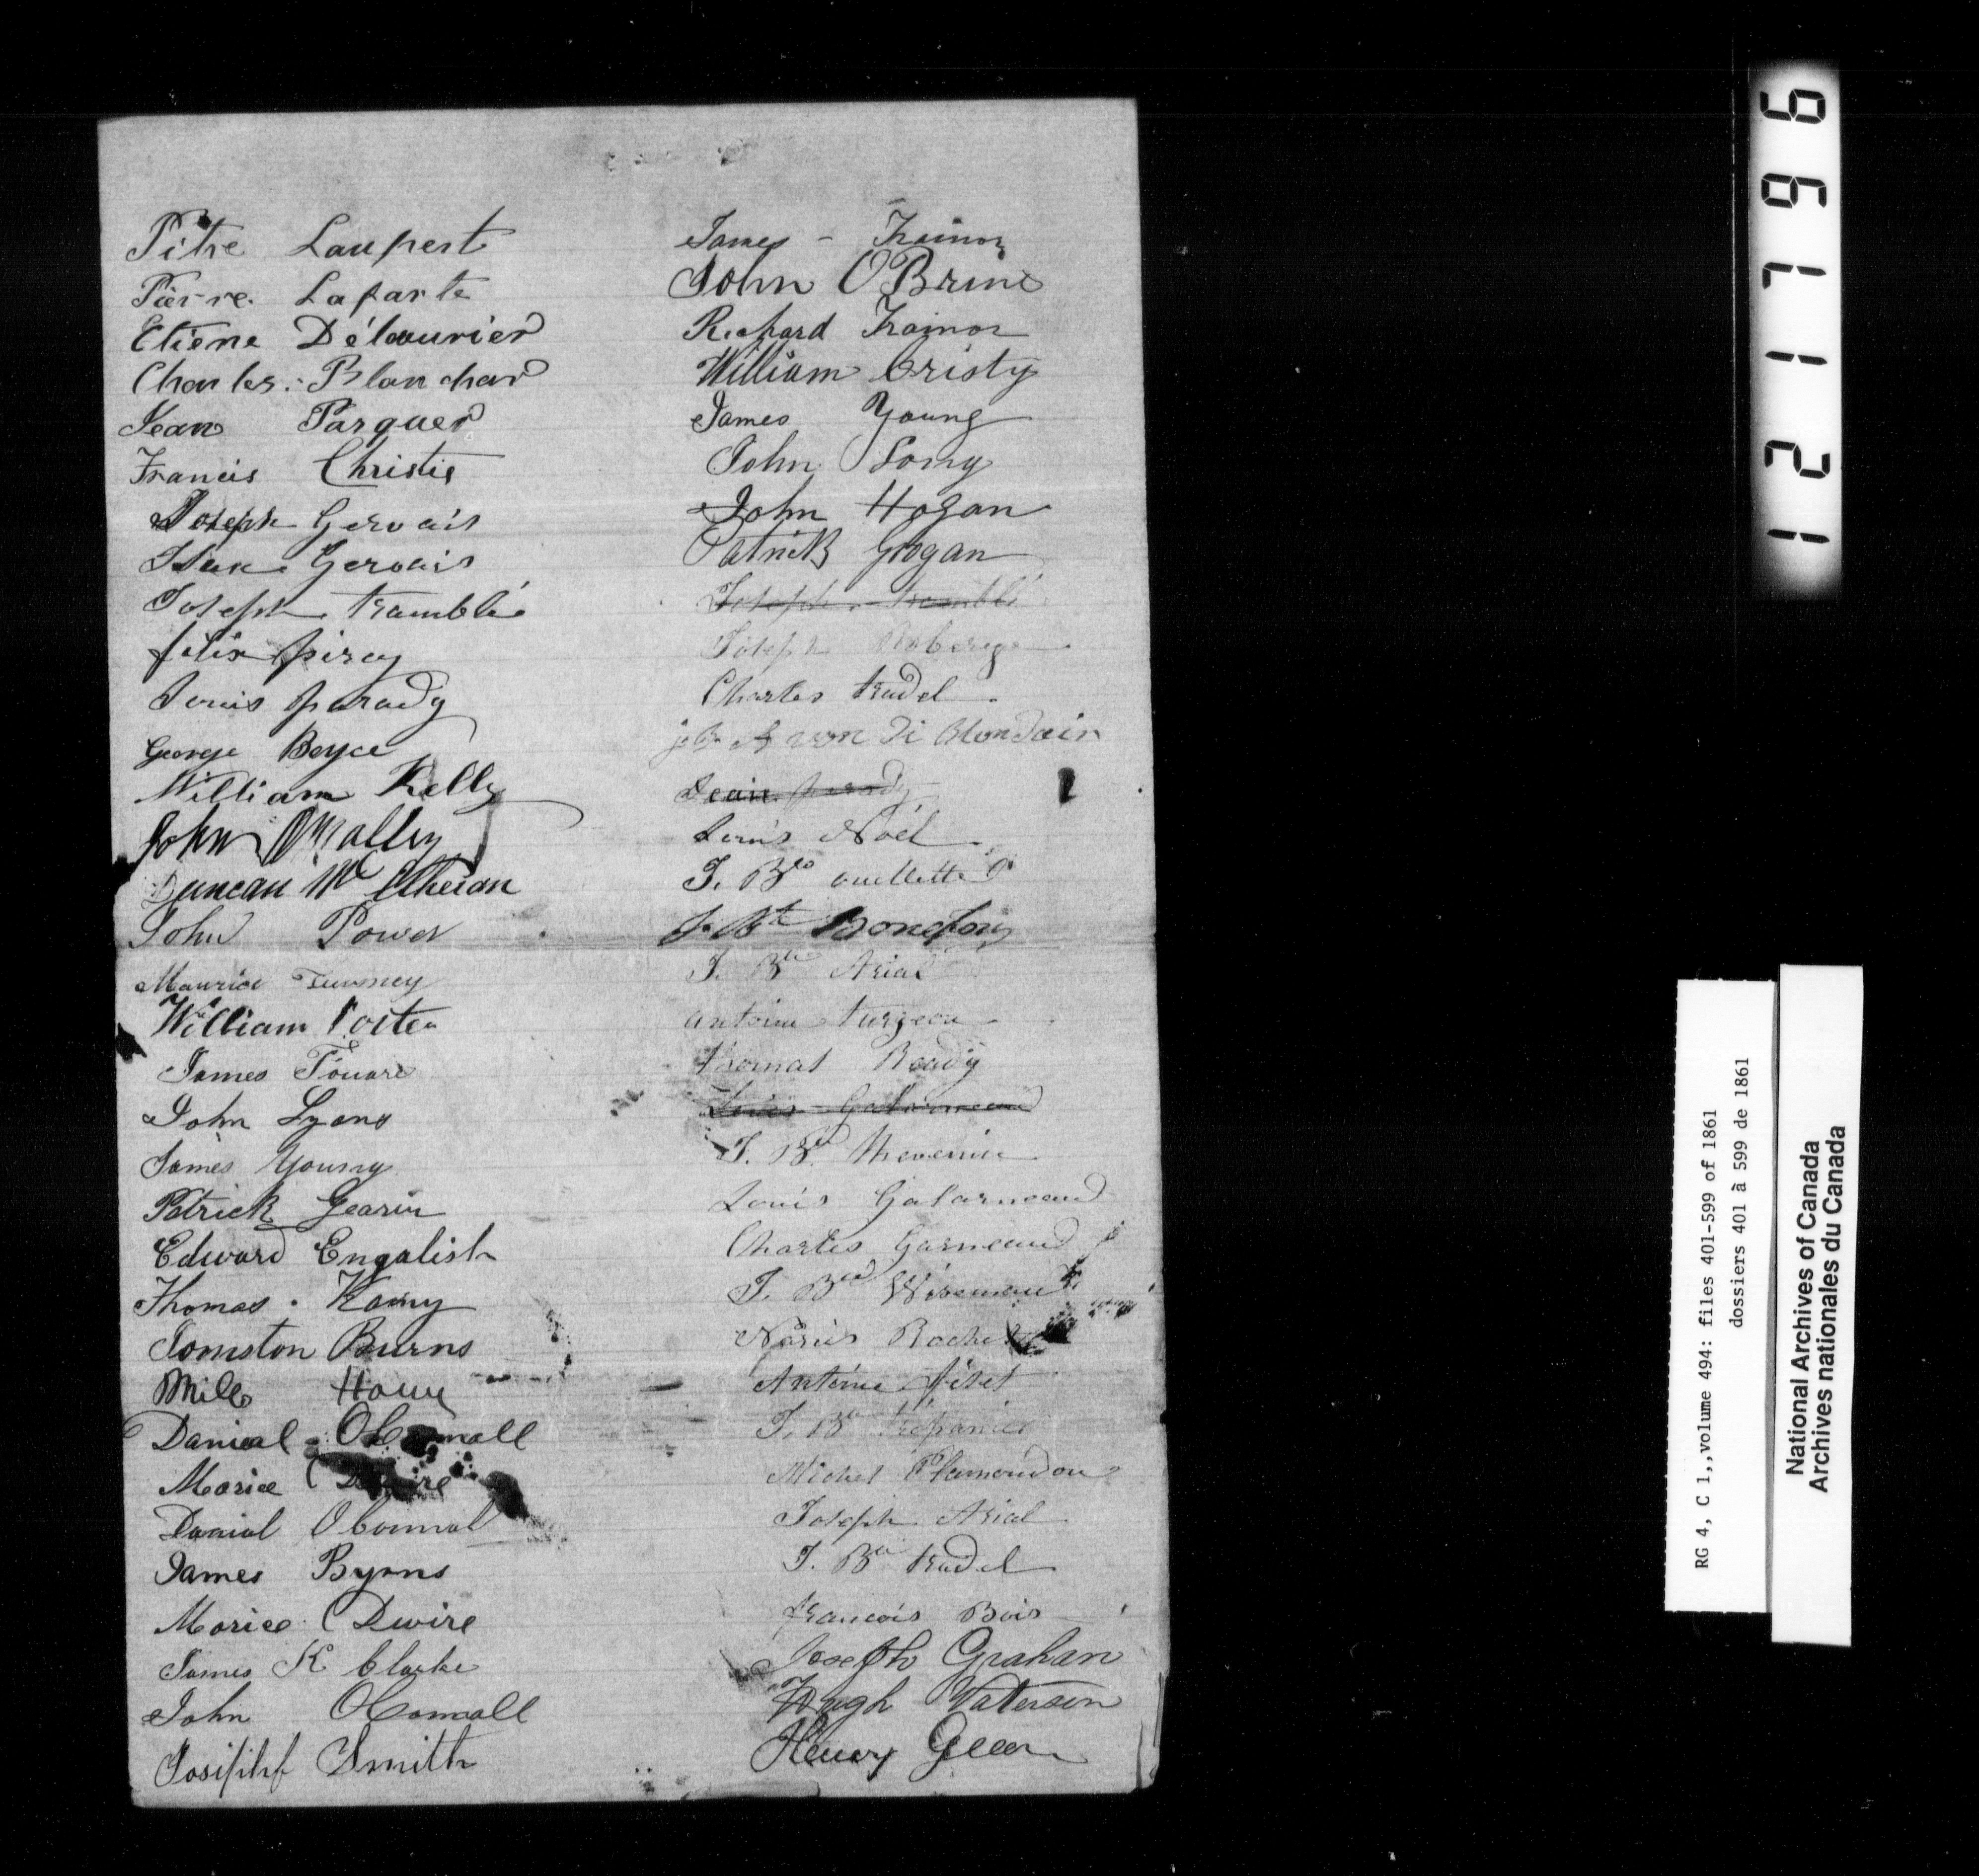 Pitre Laupert
Pierre Laparte
Etiene Délaurier
Charles Blanchar
Jean Parquer
Francis Christie
Joseph Gervais
Isaac Gervais
Joseph tramblé
félix pircy
Louis parady
George Boyce
William Kelly
John OMalley
Duncan Mc
John Power
Maurice
William Porter
James
John Lyons
James Young
Patrick Gearin
Edward Engalish
Thomas
Jomston Burns
Mile Howe
Danieal OConnall
Morice Dwire
Danial OConnal
James Byrns
Morice Dwire
James K Clarke
John OConnall
Josiphf Smith
James - Trainor
John OBrine
Richard Trainor
William Cristy
James Young
John
John Hogan
Patrick Grogan
Joseph tramblé
Joseph
Charles trudel
Blondain
Jean parady
Louis Noël
J. Bte ouellette
J. Bte
J. Bte Arial
antoine turgeon
thomas Ready
Louis Galarneaud
J. Bte thevenin
Louis Galarneaud
Charles Garneaud
J. Bte Wiseman
Rochet
Antoine fiset
J. Bte trépanier
Michel Plamondon
Joseph Arial
J. Bte trudel
francois Bois
Joseph Grahan
Hugh Waterson
Henery Green
121796
RG 4, C 1,,volume 494: files 401-599 of 1861
dossiers 401 à 599 de 1861
National Archives of Canada
Archives nationales du Canada